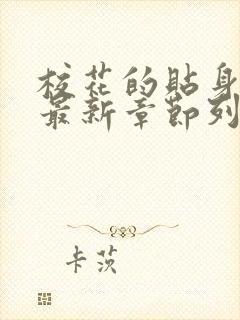 校花的贴身
最新章节列
卡茨